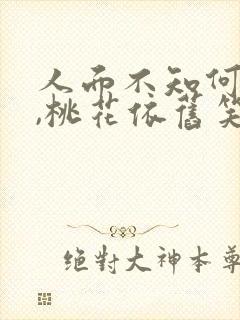 人而不知何
,桃花依舊笑
绝對大神本尊